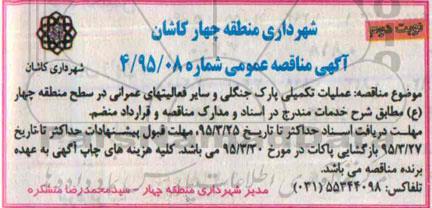 نوبت دوم
شهرداری منطقه چهار کاشان
آگهی مناقصه عمومی شماره ۴/۹۵/۰۸
شهرداری کاشان
موضوع مناقصه: عملیات تکمیلی پارک جنگلی و سایر فعالیتهای عمرانی در سطح منطقه چهار
(ع) مطابق شرح خدمات مندرج در اسناد و مدارک مناقصه و قرارداد منضم.
مهلت دریافت اسناد حداکثر تا تاریخ ۹۵/۳/۲۵، مهلت قبول پیشنهادات حداکثر تا تاریخ
۹۵/۳/۲۷ بازگشایی پاکات در مورخ ۹۵/۳/۳۰ می باشد. کلیه هزینه های چاپ آگهی به عهده
برنده مناقصه می باشد.
تلفاکس: ۵۵۳۴۴۰۹۸ (۰۳۱)
مدیر شهرداری منطقه چهار - سیدمحمدرضا متشکره